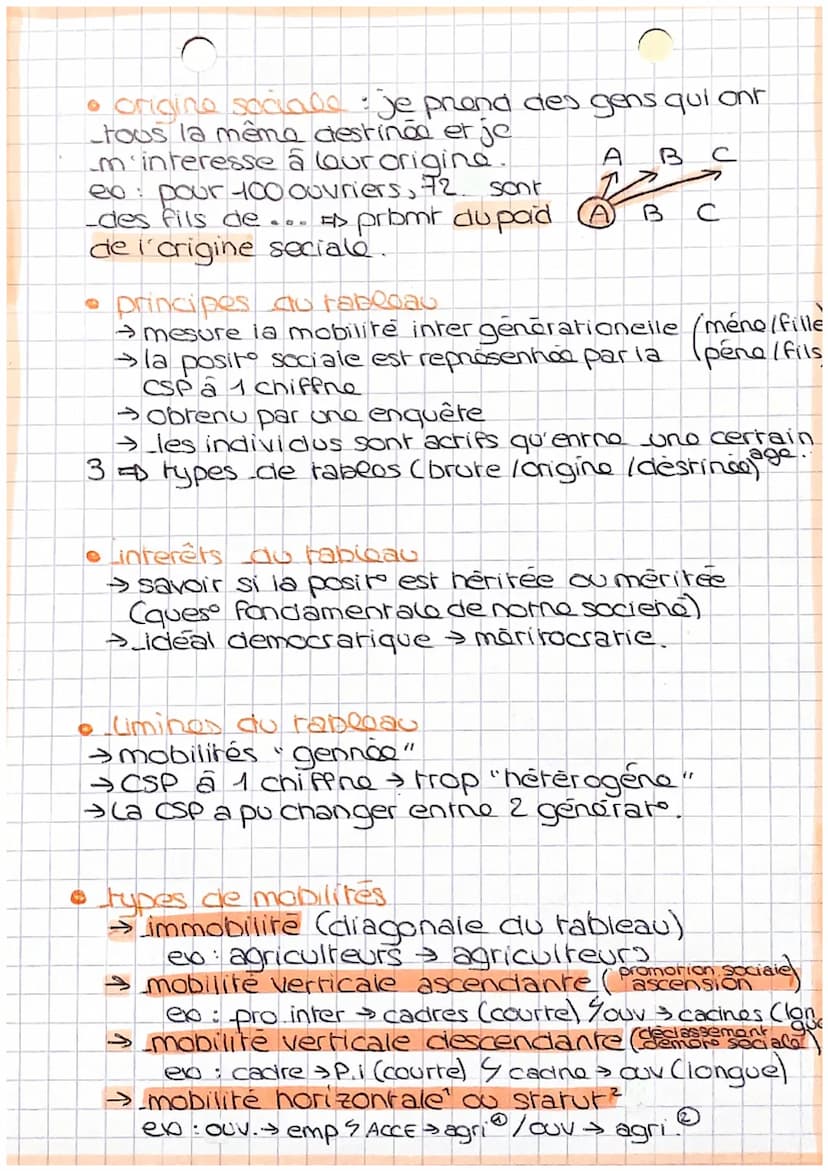 • origine sociale : je prend des gens qui ont
tous la même destinée et je
m'interesse à leur origine.
ex : pour 100 ouvriers, 72 sont
des fils de ... ⇒ prbmt du poid
de l'origine sociale.
A B C
A B C
• principes du tableau
→ mesure la mobilité intergénérationelle (mère/fille
→ la posit° sociale est représentée par la (père/fils
CSP à 1 chiffre
→ obtenu par une enquête
→ les individus sont actifs qu'entre une certain
age.
3 ⇒ types de tableos (brute/origine/destinée)
• interêts du tableau
→ savoir si la posit° est héritée ou méritée
(ques° fondamentale de notre societé)
→ idéal democratique →méritocratie.
• limites du tableau
→ mobilités "genrée"
→ CSP à 1 chiffre → trop "hétérogène"
→ la CSP a pu changer entre 2 générat°.
• types de mobilités
→ immobilité (diagonale du tableau)
ex : agriculteurs → agriculteurs
→ mobilité verticale ascendante (promotion sociale)
ascension
ex : pro.inter → cadres (courte) ouv → cadres (longue
→ mobilité verticale descendante (déclassement
démot° sociale)
ex : cadre → P.i (courte) cadre → ouv (longue)
→ mobilité horizontale¹ ou statut²
ex : ouv. → emp ACCE → agri ① / ouv → agri. ②